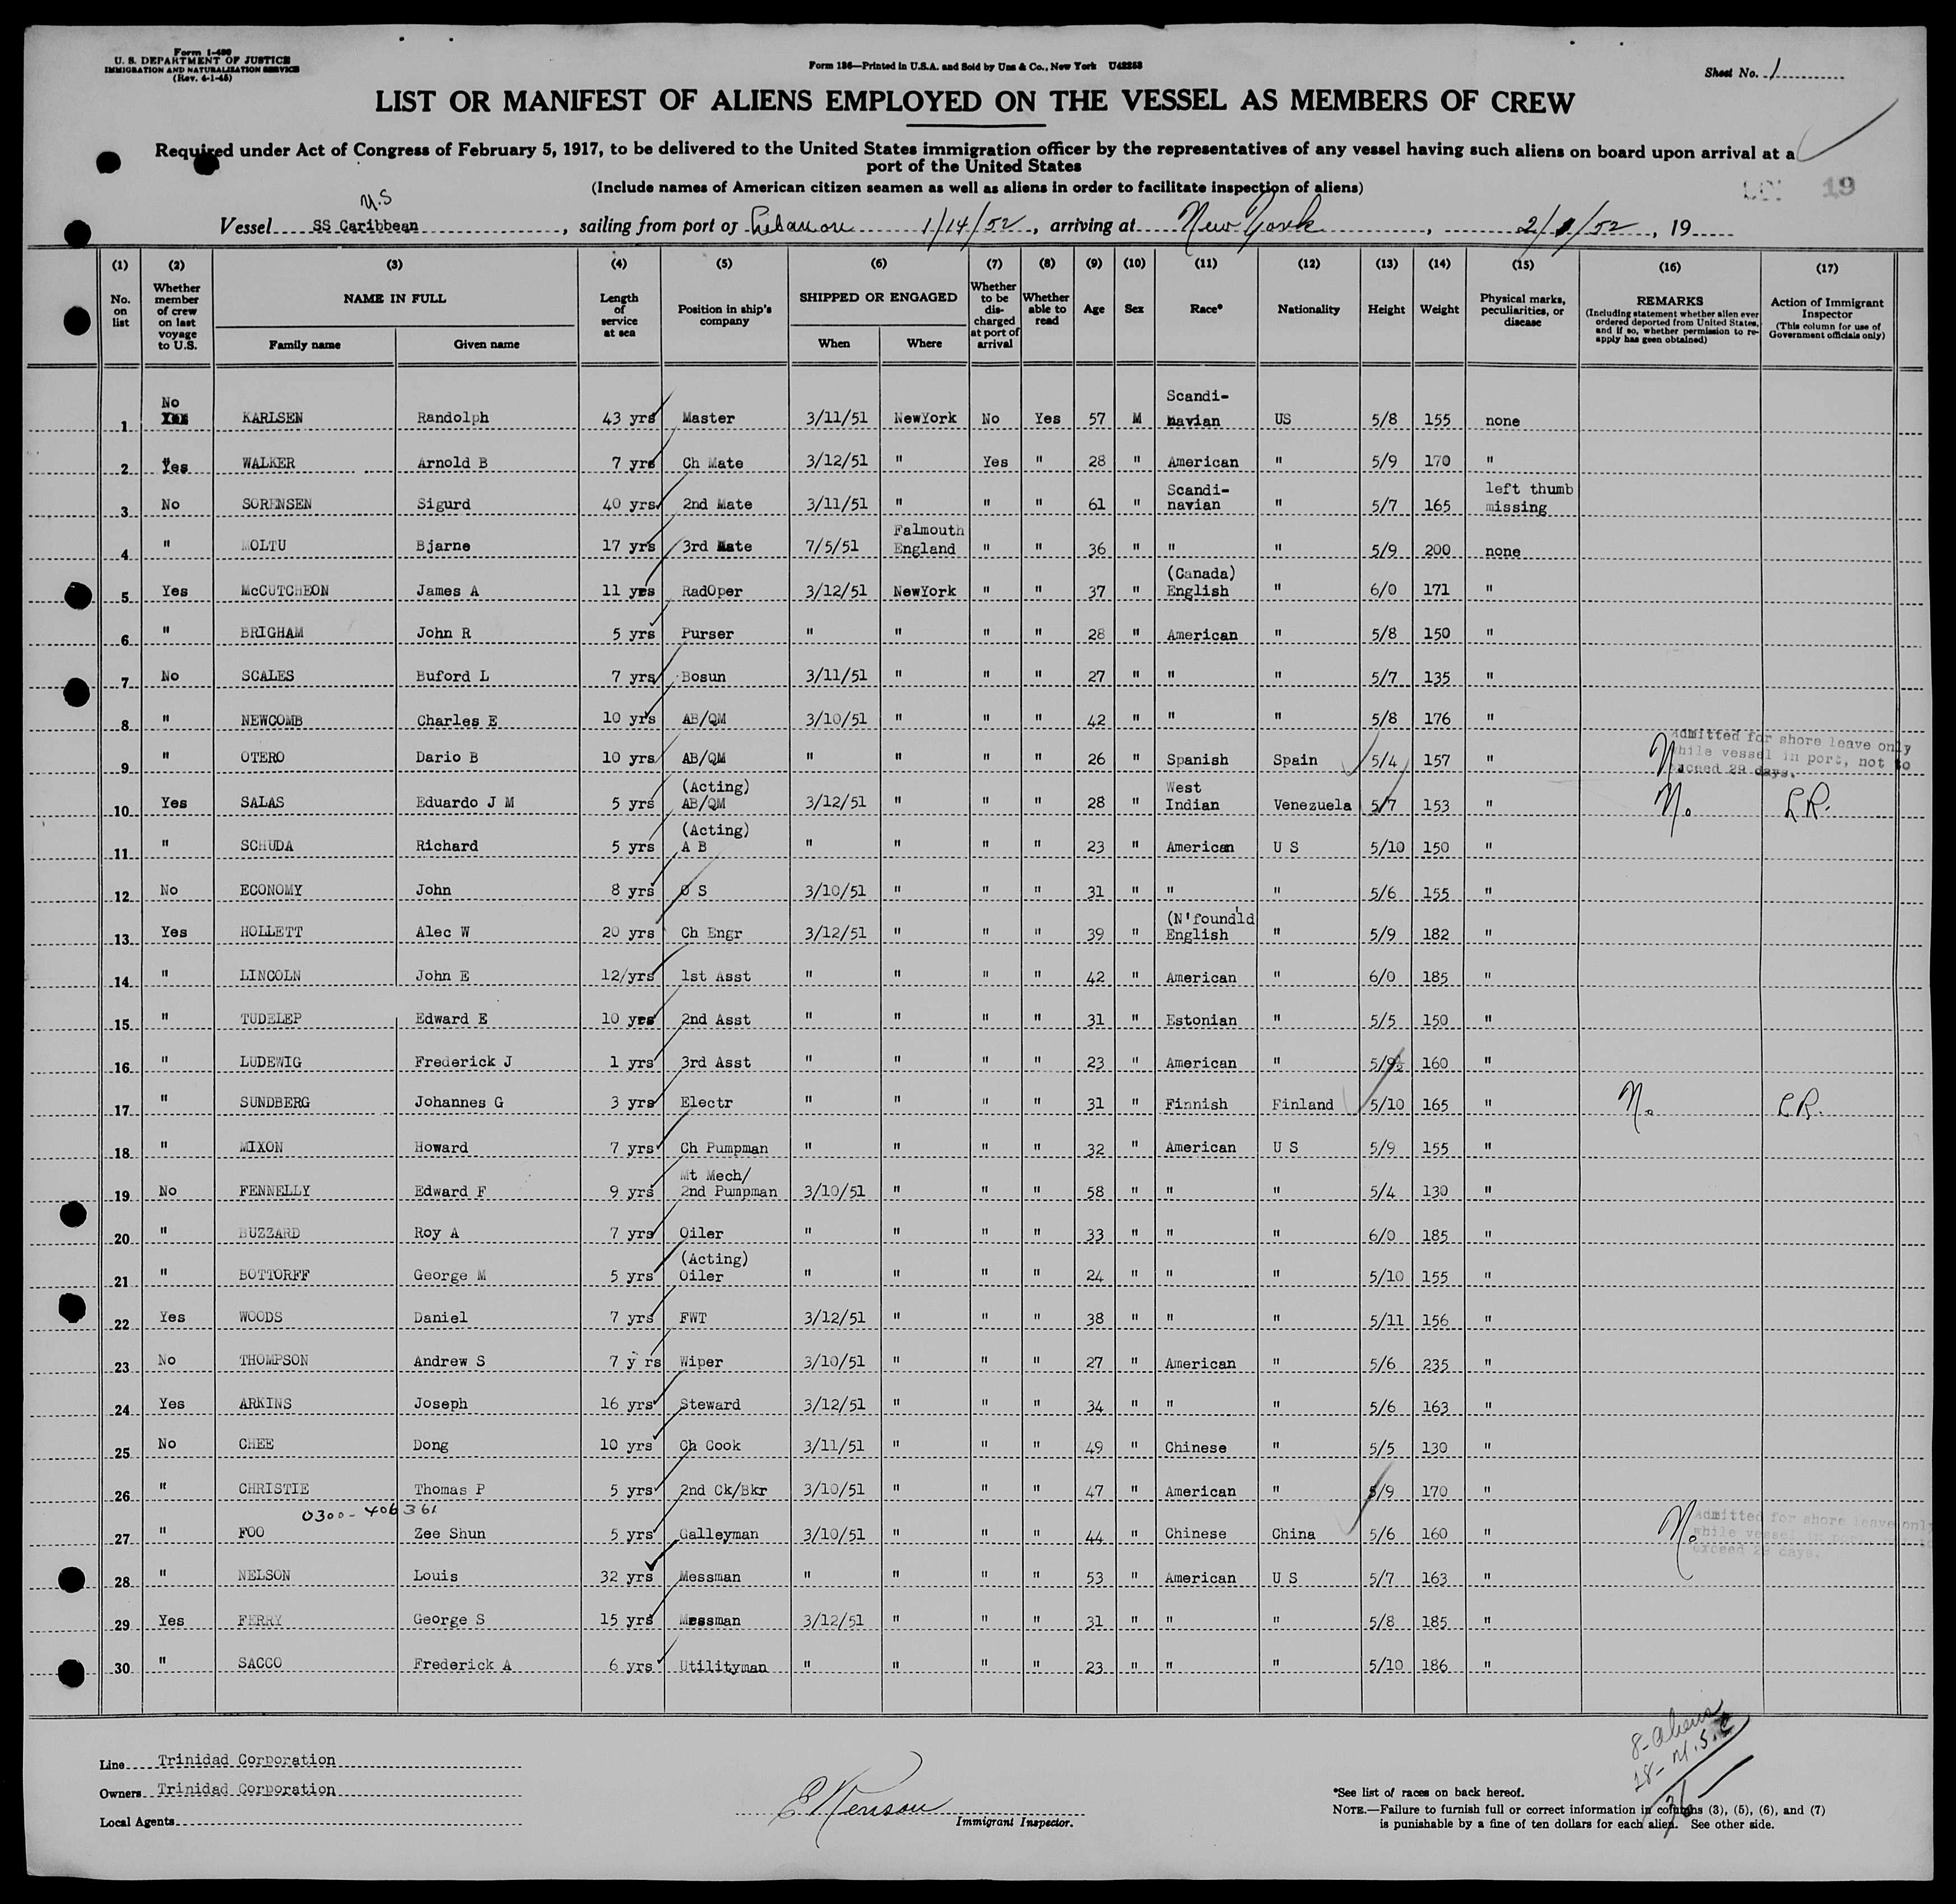 Form I-480
U. S. DEPARTMENT OF JUSTICE
IMMIGRATION AND NATURALIZATION SERVICE
(Rev. 4-1-45)
Form 136—Printed in U.S.A. and Sold by Unz & Co., New York U42253
Sheet No. 1
LIST OR MANIFEST OF ALIENS EMPLOYED ON THE VESSEL AS MEMBERS OF CREW
Required under Act of Congress of February 5, 1917, to be delivered to the United States immigration officer by the representatives of any vessel having such aliens on board upon arrival at a
port of the United States
(Include names of American citizen seamen as well as aliens in order to facilitate inspection of aliens)
19
U.S
Vessel SS Caribbean, sailing from port of Lebanon 1/14/52, arriving at New York, 2/1/52, 19
(1) (2) (3) (4) (5) (6) (7) (8) (9) (10) (11) (12) (13) (14) (15) (16) (17)
No. on list
Whether member of crew on last voyage to U.S.
NAME IN FULL
Family name Given name
Length of service at sea
Position in ship's company
SHIPPED OR ENGAGED
When Where
Whether to be discharged at port of arrival
Whether able to read
Age
Sex
Race*
Nationality
Height
Weight
Physical marks, peculiarities, or disease
REMARKS
(Including statement whether alien ever ordered deported from United States, and if so, whether permission to re-apply has geen obtained)
Action of Immigrant Inspector
(This column for use of Government officials only)
1 No KARLSEN Randolph 43 yrs Master 3/11/51 NewYork No Yes 57 M Scandi-navian US 5/8 155 none
2 Yes WALKER Arnold B 7 yrs Ch Mate 3/12/51 " Yes " 28 " American " 5/9 170 "
3 No SORENSEN Sigurd 40 yrs 2nd Mate 3/11/51 " " " 61 " Scandi-navian " 5/7 165 left thumb missing
4 " MOLTU Bjarne 17 yrs 3rd Mate 7/5/51 Falmouth England " " 36 " " " 5/9 200 none
5 Yes McCUTCHEON James A 11 yrs RadOper 3/12/51 NewYork " " 37 " (Canada) English " 6/0 171 "
6 " BRIGHAM John R 5 yrs Purser " " " " 28 " American " 5/8 150 "
7 No SCALES Buford L 7 yrs Bosun 3/11/51 " " " 27 " " " 5/7 135 "
8 " NEWCOMB Charles E 10 yrs AB/QM 3/10/51 " " " 42 " " " 5/8 176 "
9 " OTERO Dario B 10 yrs AB/QM " " " " 26 " Spanish Spain 5/4 157 " No Admitted for shore leave only while vessel in port, not to exceed 29 days.
10 Yes SALAS Eduardo J M 5 yrs (Acting) AB/QM 3/12/51 " " " 28 " West Indian Venezuela 5/7 153 " No LR.
11 " SCHUDA Richard 5 yrs (Acting) A B " " " " 23 " American U S 5/10 150 "
12 No ECONOMY John 8 yrs O S 3/10/51 " " " 31 " " " 5/6 155 "
13 Yes HOLLETT Alec W 20 yrs Ch Engr 3/12/51 " " " 39 " (N'found'ld English " 5/9 182 "
14 " LINCOLN John E 12/yrs 1st Asst " " " " 42 " American " 6/0 185 "
15 " TUDELEP Edward E 10 yrs 2nd Asst " " " " 31 " Estonian " 5/5 150 "
16 " LUDEWIG Frederick J 1 yrs 3rd Asst " " " " 23 " American " 5/9½ 160 "
17 " SUNDBERG Johannes G 3 yrs Electr " " " " 31 " Finnish Finland 5/10 165 " No LR.
18 " MIXON Howard 7 yrs Ch Pumpman " " " " 32 " American U S 5/9 155 "
19 No FENNELLY Edward F 9 yrs Mt Mech/ 2nd Pumpman 3/10/51 " " " 58 " " " 5/4 130 "
20 " BUZZARD Roy A 7 yrs Oiler " " " " 33 " " " 6/0 185 "
21 " BOTTORFF George M 5 yrs (Acting) Oiler " " " " 24 " " " 5/10 155 "
22 Yes WOODS Daniel 7 yrs FWT 3/12/51 " " " 38 " " " 5/11 156 "
23 No THOMPSON Andrew S 7 y rs Wiper 3/10/51 " " " 27 " American " 5/6 235 "
24 Yes ARKINS Joseph 16 yrs Steward 3/12/51 " " " 34 " " " 5/6 163 "
25 No CHEE Dong 10 yrs Ch Cook 3/11/51 " " " 49 " Chinese " 5/5 130 "
26 " CHRISTIE Thomas P 5 yrs 2nd Ck/Bkr 3/10/51 " " " 47 " American " 5/9 170 "
0300-406361
27 " FOO Zee Shun 5 yrs Galleyman 3/10/51 " " " 44 " Chinese China 5/6 160 " No Admitted for shore leave only while vessel in port, not to exceed 29 days.
28 " NELSON Louis 32 yrs Messman " " " " 53 " American U S 5/7 163 "
29 Yes FERRY George S 15 yrs Messman 3/12/51 " " " 31 " " " 5/8 185 "
30 " SACCO Frederick A 6 yrs Utilityman " " " " 23 " " " 5/10 186 "
8-aliens
28-U.S.C
36
Line Trinidad Corporation
Owners Trinidad Corporation
Local Agents
Immigrant Inspector.
*See list of races on back hereof.
NOTE.—Failure to furnish full or correct information in columns (3), (5), (6), and (7)
is punishable by a fine of ten dollars for each alien. See other side.